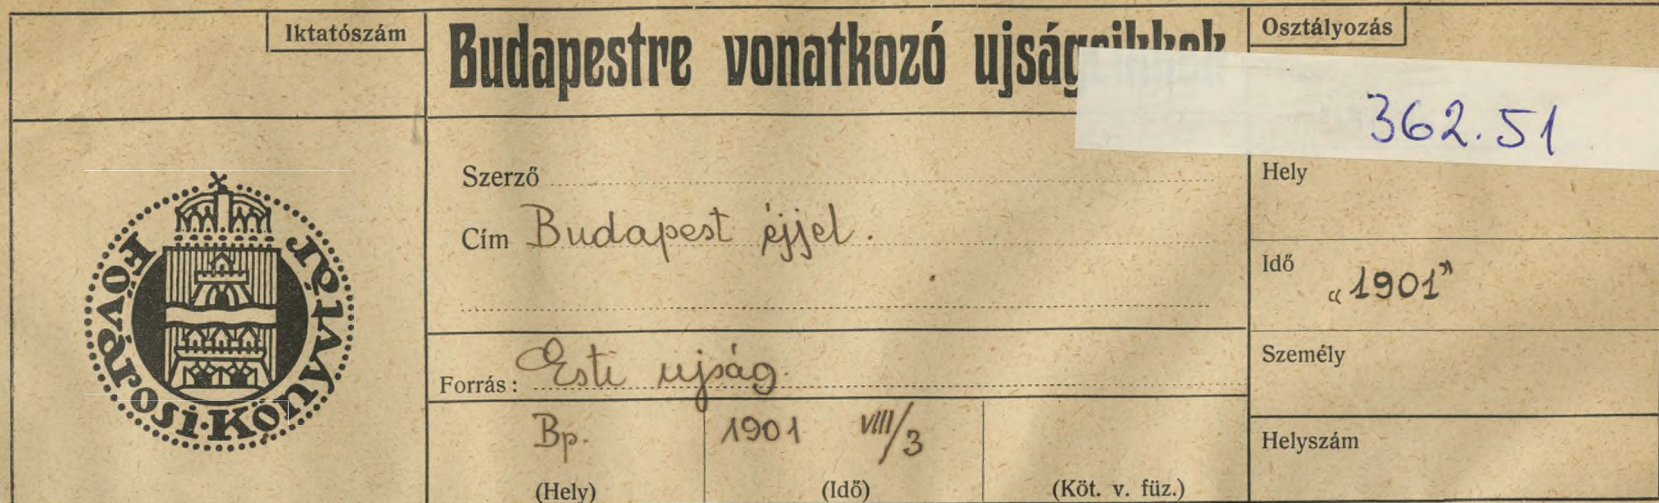 Iktatószám
Budapestre vonatkozó ujságcikkek
Osztályozás
362.51
Fővárosi·Könyvtár
Szerző
Cím Budapest éjjel.
Forrás: Esti ujság.
Bp.
1901 VIII/3
(Hely)
(Idő)
(Köt. v. füz.)
Hely
Idő
„1901”
Személy
Helyszám